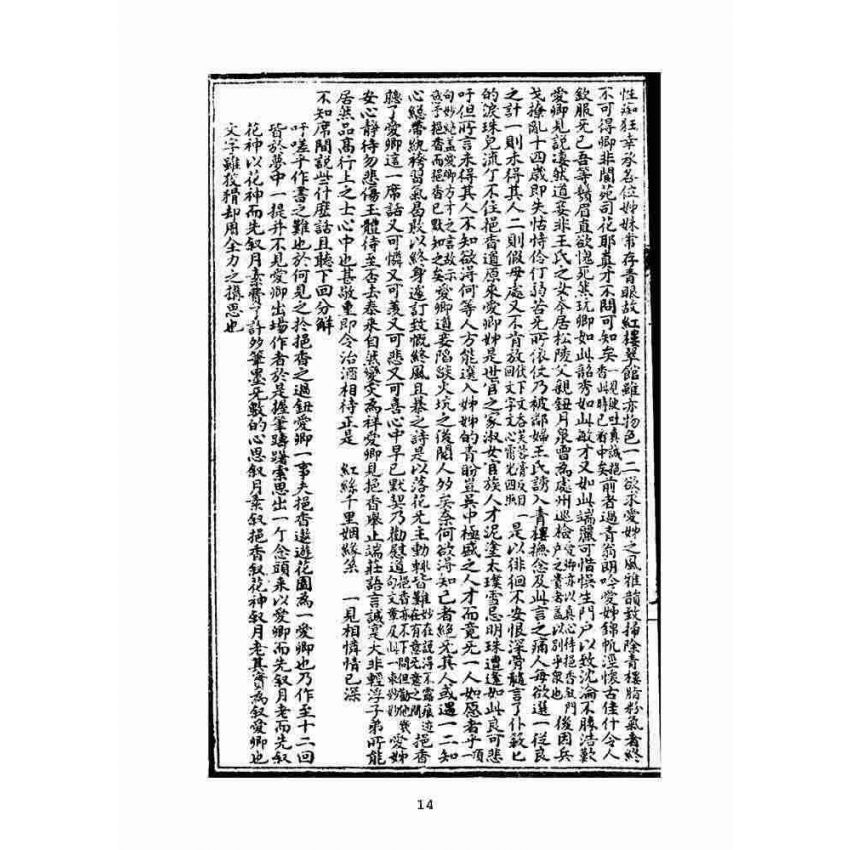 性痴狂幸承各位姊妹常存青眼故紅樓翠館雖亦物色一二欲求愛姊之風雅韻致掃除青樓脂粉氣者終
不可得卿非閬苑司花耶真才不問可知矣 前者過青翁朗吟愛姊錦帆涇懷古佳什令人
欽服無已吾等鬚眉直欲愧死然玩卿如此韶秀如此敏才又如此端麗可惜悞生門戶以致沈淪不勝浩歎
愛卿見說凄然道妾非王氏之女本居松陵父親鈕月泉曾為處州巡檢 後因兵
戈撩亂十四歲即失怙恃伶仃苦無所依仗乃被鄰婦王氏誘入青樓撫念及此言之痛人每欲選一從良
之計一則未得其人二則假母處又不肯放 一是以徘徊不安恨深骨髓言了仆簌匕
的淚珠兒流個不住挹香道原來愛卿姊是世官之家淑女官族人才泥塗太璞雪忌明珠遭逢如此良可悲
吁但所言未得其人不知欲得何等人方能選入姊姊的青盼豈吳中極盛之人才而竟無一人如愿者乎
愛卿道妾陷燄火坑之後閱人妙矣奈何欲得知己者絕無其人或遇一二知
心總帶紈袴習氣曷敢以終身遽訂致慨終風且暴之詩是以落花無主動輒皆難 挹香
聽了愛卿這一席話又可憐又可羨又可悲又可喜心中早已默契乃勸慰道 愛姊
安心靜待勿悲傷玉體待至否去泰來自然變災為祥愛卿見挹香舉止端莊語言誠實大非輕浮子弟所能
居然品高行上之士心中也甚敬重即令治酒相待正是 紅絲千里姻緣系 一見相憐情已深
不知席間說些什麼話且聽下回分解
吁嗟乎作書之難也於何見之於挹香之遇鈕愛卿一事夫挹香遨遊花園為一愛卿也乃作至十二回
皆於夢中一提并不見愛卿出場作者於是握筆躊躇索思出一個念頭來以愛卿而先叙月老而先叙
花神以花神而先叙月素費了許多筆墨無數的心思叙月素叙挹香叙花神叙月老其實為叙愛卿也
文字雖狡猾却用全力之撰思也
14